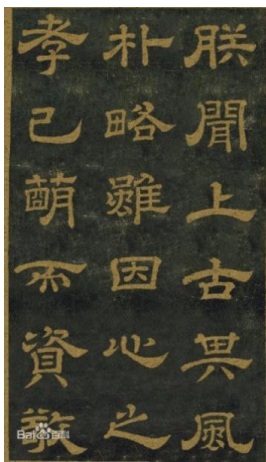 朕聞上古其風
朴略雖因心之
孝已萌而資敬
Baidu百科